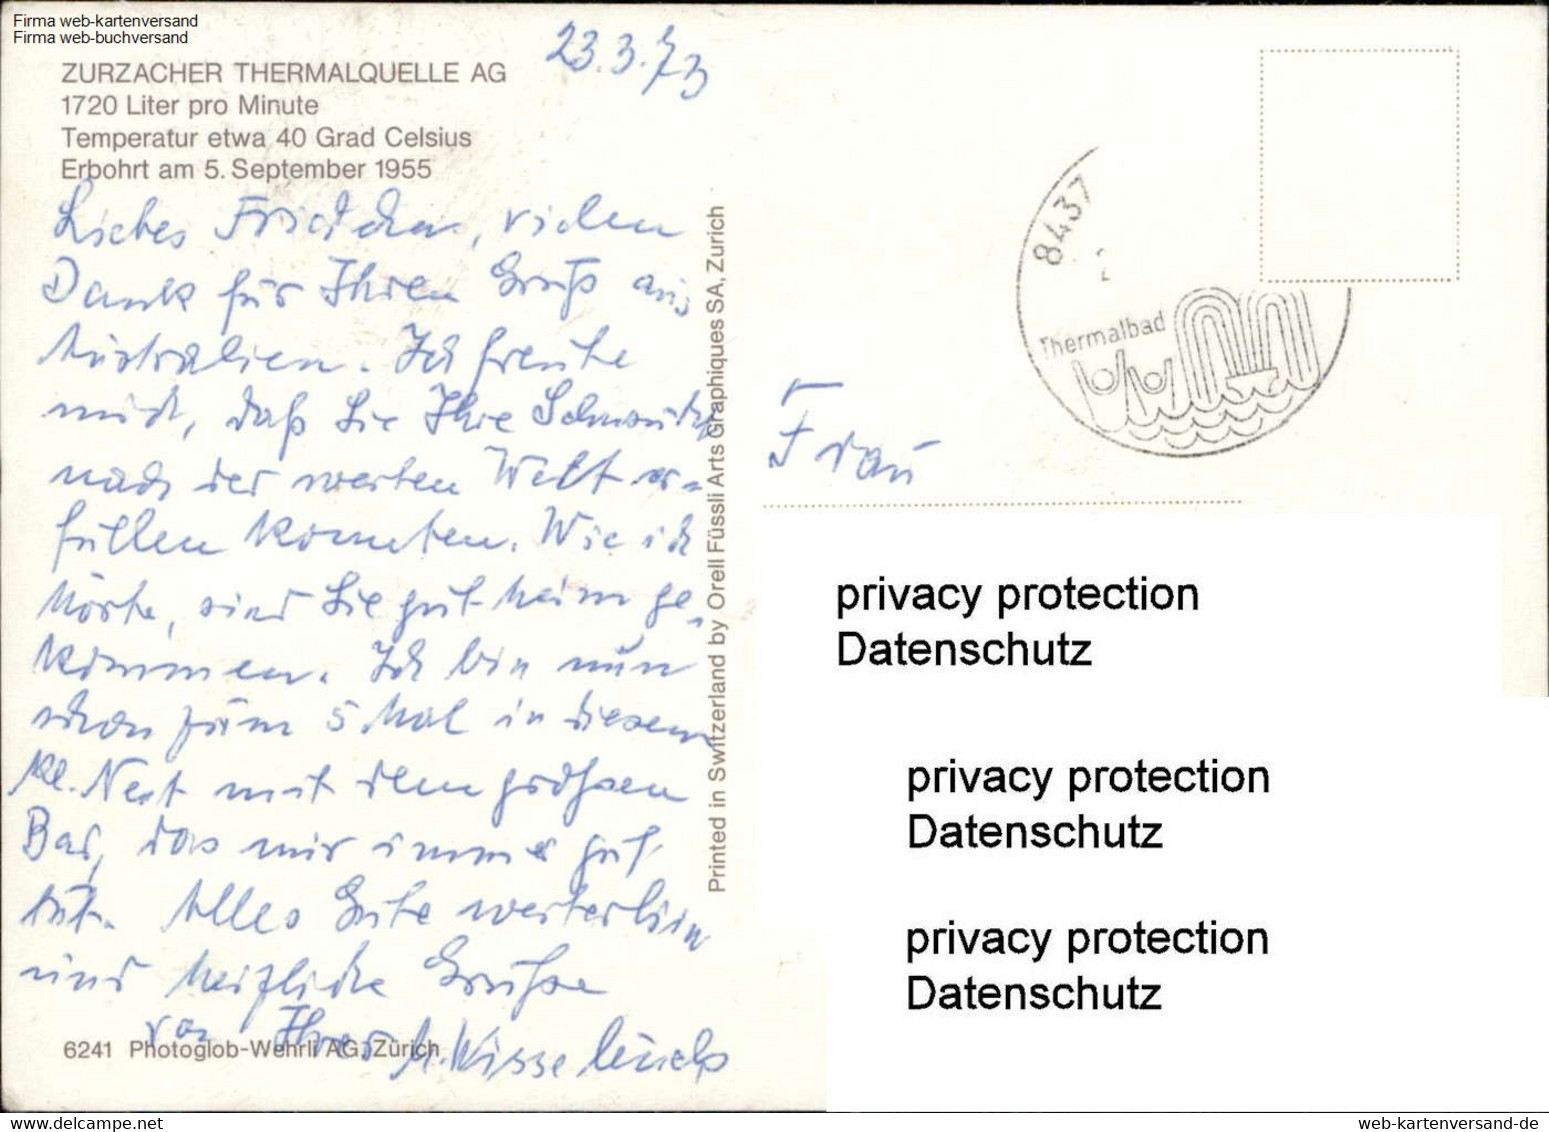 Firma web-kartenversand
Firma web-buchversand
23.3.73
ZURZACHER THERMALQUELLE AG
1720 Liter pro Minute
Temperatur etwa 40 Grad Celsius
Erbohrt am 5. September 1955
Liebes Friedchen, vielen
Dank für Ihren Gruß aus
Australien. Ich freute
mich, daß Sie Ihre Sehnsucht
nach der weiten Welt er-
füllen konnten. Wie ich
hörte, sind Sie gut heim ge-
kommen. Ich bin nun
schon zum 5 Mal in diesem
kl. Nest mit dem großen
Bad, das mir immer gut
tut. Alles Gute weiterhin
und herzliche Grüße
von Ihrer
6241 Photoglob-Wehrli AG, Zürich
Printed in Switzerland by Orell Füssli Arts Graphiques SA, Zurich
8437
2
Thermalbad
Frau
privacy protection
Datenschutz
privacy protection
Datenschutz
privacy protection
Datenschutz
www.delcampe.net
web-kartenversand-de